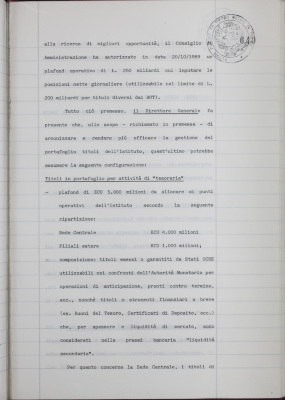 alla ricerca di migliori opportunità, il Consiglio di
Amministrazione ha autorizzato in data 20/10/1989 un
plafond operativo di L. che miliardi cui imputare le
posizioni nette giornaliere (utilizzabile nel limite di L.
200 miliardi per titoli diversi dai BOT).
Tutto ciò premesso, il Direttore Generale fa
presente che, allo scopo - richiamato in premessa - di
armonizzare e rendere più efficace la gestione del
portafoglio titoli dell'Istituto, quest'ultimo potrebbe
assumere la seguente configurazione:
Titoli in portafoglio per attività di "tesoreria"
- plafond di ECU 5.000 milioni da allocare ai punti
operativi dell'Istituto secondo la seguente
ripartizione:
Sede Centrale ECU 4.000 milioni
Filiali estere ECU 1.000 milioni;
- composizione: titoli emessi o garantiti da Stati OCSE
utilizzabili nei confronti dell'Autorità Monetaria per
operazioni di anticipazione, pronti contro termine,
ecc., nonché titoli e strumenti finanziari a breve
(es. Buoni del Tesoro, Certificati di Deposito, ecc.)
che, per spessore e liquidità di mercato, sono
considerati nella prassi bancaria "liquidità
secondaria".
Per quanto concerne la Sede Centrale, i titoli di